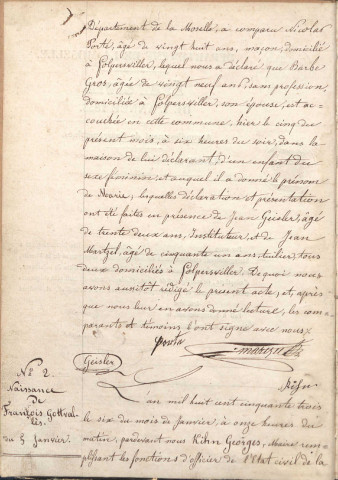 Département de la Moselle, a comparu Nicolas
Porté, âgé de vingt huit ans, maçon, domicilié
à Folperswiller, lequel nous a déclaré que Barbe
Gros, âgée de vingt neuf ans, sans profession,
domiciliée à Folperswiller, son épouse, est ac-
couchée en cette commune, hier le cinq du
présent mois, à six heures du soir, dans la
maison de lui déclarant, d'un enfant du
sexe féminin, et auquel il a donné le prénom
de Marie, lesquelles déclaration et présentation
ont été faites en présence de Jean Geisler, âgé
de trente deux ans, Instituteur, et de Jean
Martzel, âgé de cinquante un ans, tuilier, tous
deux domiciliés à Folperswiller. De quoi nous
avons aussitôt rédigé le présent acte, et, après
que nous leur en avons donné lecture, les com-
parants et témoins l'ont signé avec nous
porta
Geisler
N° 2.
Naissance
De
François Gottval-
lès.
du 5 Janvier.
L'an mil huit cent cinquante trois
le six du mois de Janvier, à onze heures du
matin, pardevant nous Kihn Georges, Maire rem-
plissant les fonctions d'officier de l'Etat civil de la